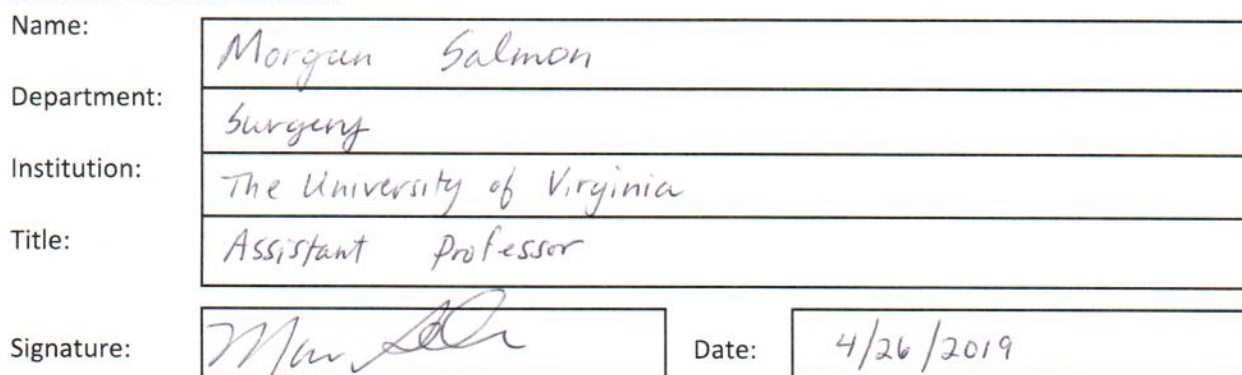 Name: Morgan Salmon
Department: Surgery
Institution: The University of Virginia
Title: Assistant Professor
Signature: Date: 4/26/2019